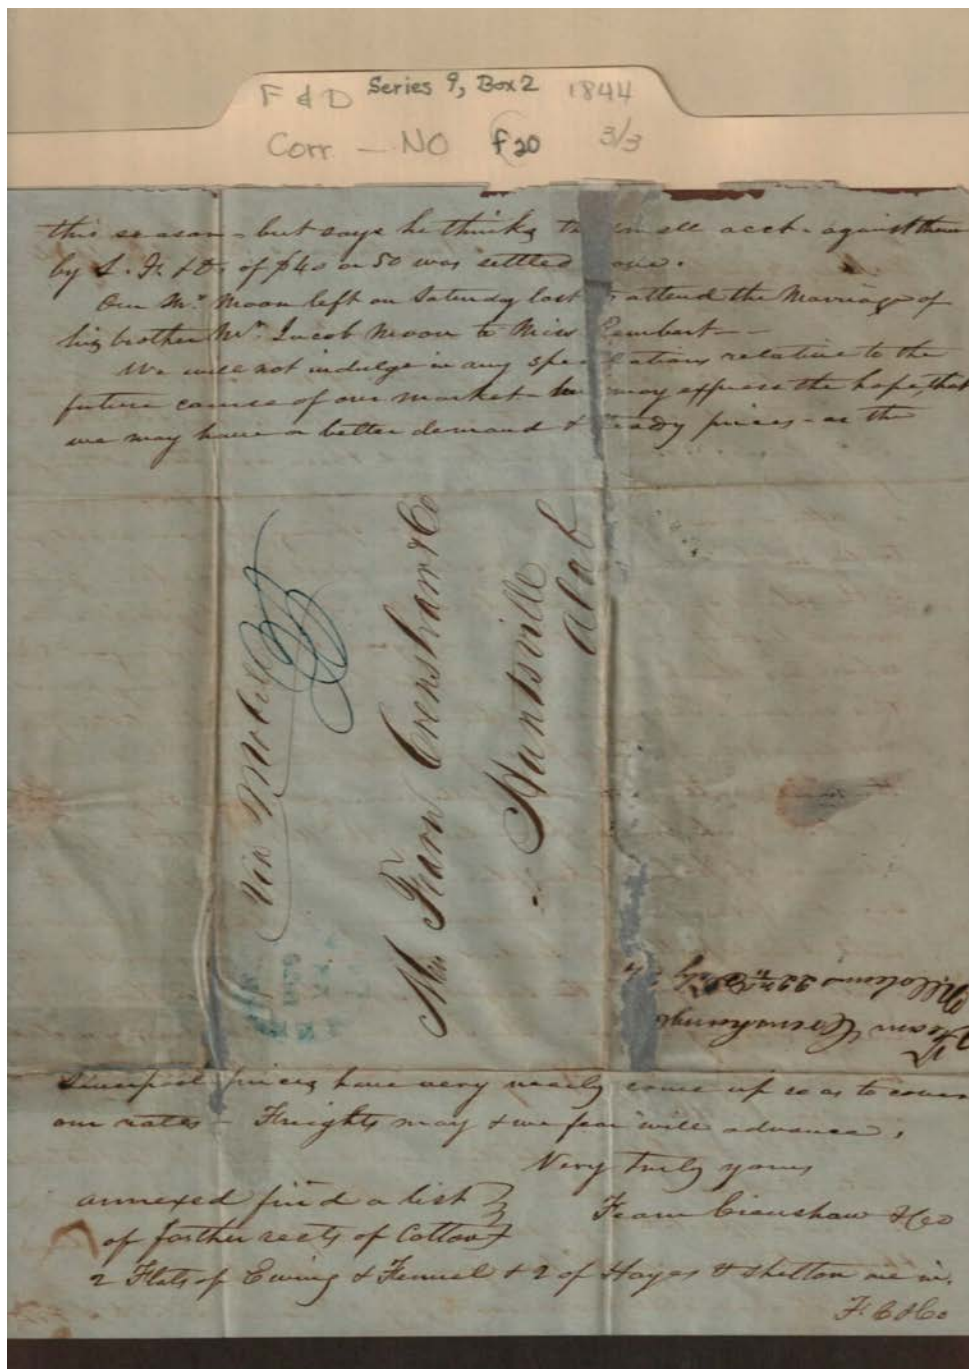 F & D Series 9, Box 2 1844
Corr — NO f20 3/3
this season - but says he thinks the small acct. against them
by L. F. & D. of $40 or 50 was settled
Our Mr. Moon left on Saturday last to attend the Marriage of
his brother Mr. Jacob Moon to Miss Rembert —
We will not indulge in any speculations relative to the
future course of our market - we may express the hope, that
we may have a better demand & steady prices - as the
Via Mobile
Fearn Crenshaw & Co
Huntsville
Alab
Fearn Crenshaw
N Orleans 22
Liverpool prices have very nearly come up so as to cover
our rates - Freights may & we fear will advance.
Very truly yours
Fearn Crenshaw & Co
annexed find a list
of farther rects of Cotton
2 Flats of Ewing & & 2 of Hayes & Shelton are in.
F. C & Co